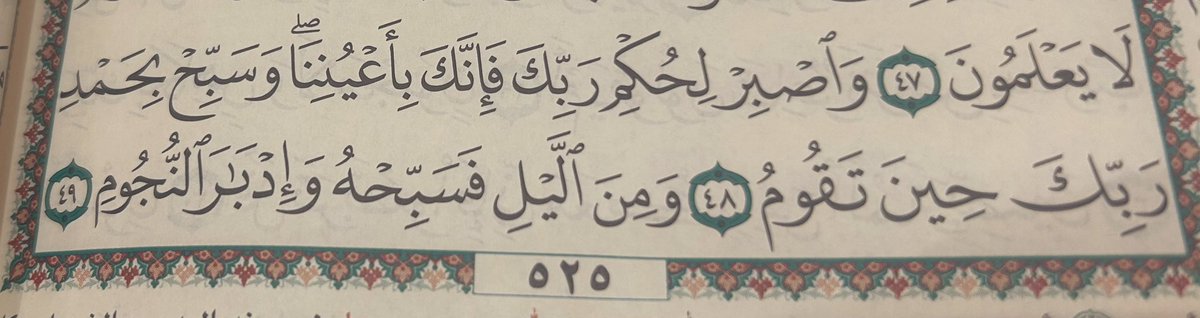 لَا يَعْلَمُونَ ٤٧ وَٱصْبِرْ لِحُكْمِ رَبِّكَ فَإِنَّكَ بِأَعْيُنِنَاۖ وَسَبِّحْ بِحَمْدِ
رَبِّكَ حِينَ تَقُومُ ٤٨ وَمِنَ ٱلَّيْلِ فَسَبِّحْهُ وَإِدْبَٰرَ ٱلنُّجُومِ ٤٩
٥٢٥